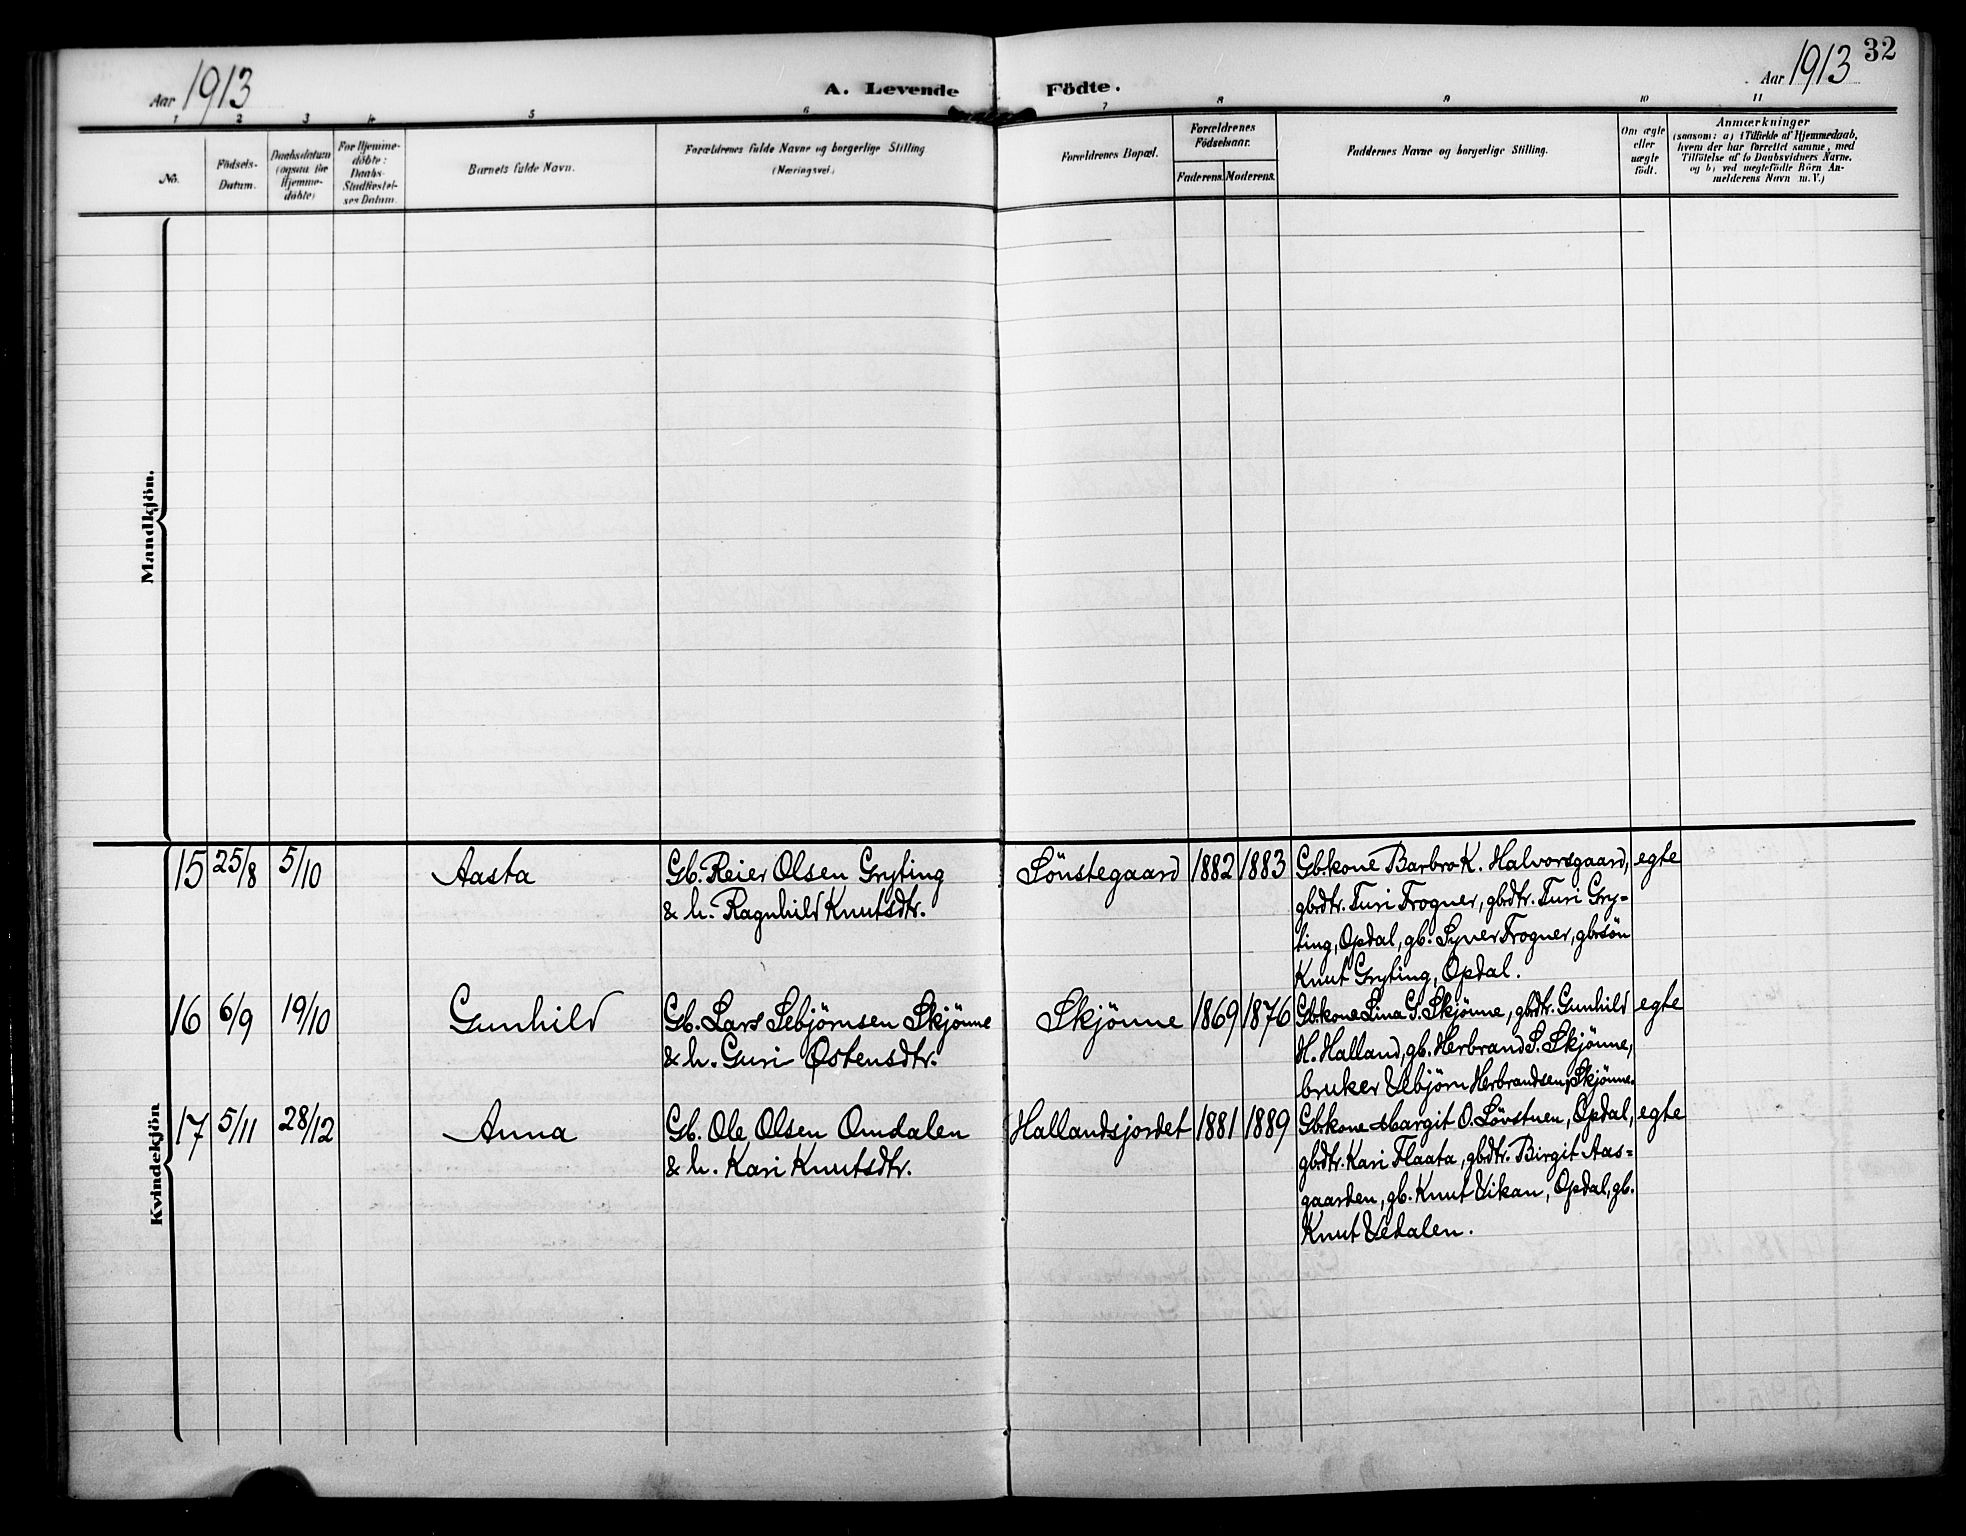 Aar 1913
A. Levende Födte.
Aar 1913
32
1 2 3 4 5 6 7 8 9 10 11
No.
Födsels-
Datum.
Daabsdatum
(ogsaa for
Hjemme-
döbte)
For Hjemme-
döbte:
Daabs-
Stadfæstel-
ses Datum.
Barnets fulde Navn.
Forældrenes fulde Navne og borgerlige Stilling
(Næringsvei)
Forældrenes Bopæl.
Forældrenes
Födselsaar.
Faderens. Moderens.
Faddernes Navne og borgerlige Stilling.
Om ægte
eller
uægte
födt.
Anmærkninger
(saasom: a) i Tilfælde af Hjemmedaab,
hvem der har forrettet samme, med
Tilföielse af to Daabsvidners Navne.
og b) ved uægtefödte Börn An-
melderens Navn m. V.)
Mandkjön.
Kvindekjön
15 25/8 5/10 Aasta
Gb. Reier Olsen Gryting
& h. Ragnhild Knutsdtr.
Sönstegaard 1882 1883
Gbkone Barbro K. Halvorsgaard,
gbrdtr. Turi Frogner, gbdtr. Turi Gry-
ting, Opdal, gb. Syver Frogner, gbrsön
Knut Gryting, Opdal.
egte
16 6/9 19/10 Gunhild
Gb. Lars Sebjörnsen Skjönne
& h. Guri Østensdtr.
Skjönne 1869 1876
Gbkone Lina G. Skjönne, gbdtr. Gunhild
H. Halland, gb. Herbrand S. Skjönne,
bruker Sebjörn Herbrandsen, Skjönne.
egte
17 5/11 28/12 Anna
Gb. Ole Olsen Omdalen
& h. Kari Knutsdtr.
Hallandsjordet 1881 1889
Gbkone Margit O. Lövstuen, Opdal,
gbrdtr. Kari Flaata, gbdtr. Birgit Aas-
gaarden, gb. Knut Vikan, Opdal, gb.
Knut Vedalen.
egte